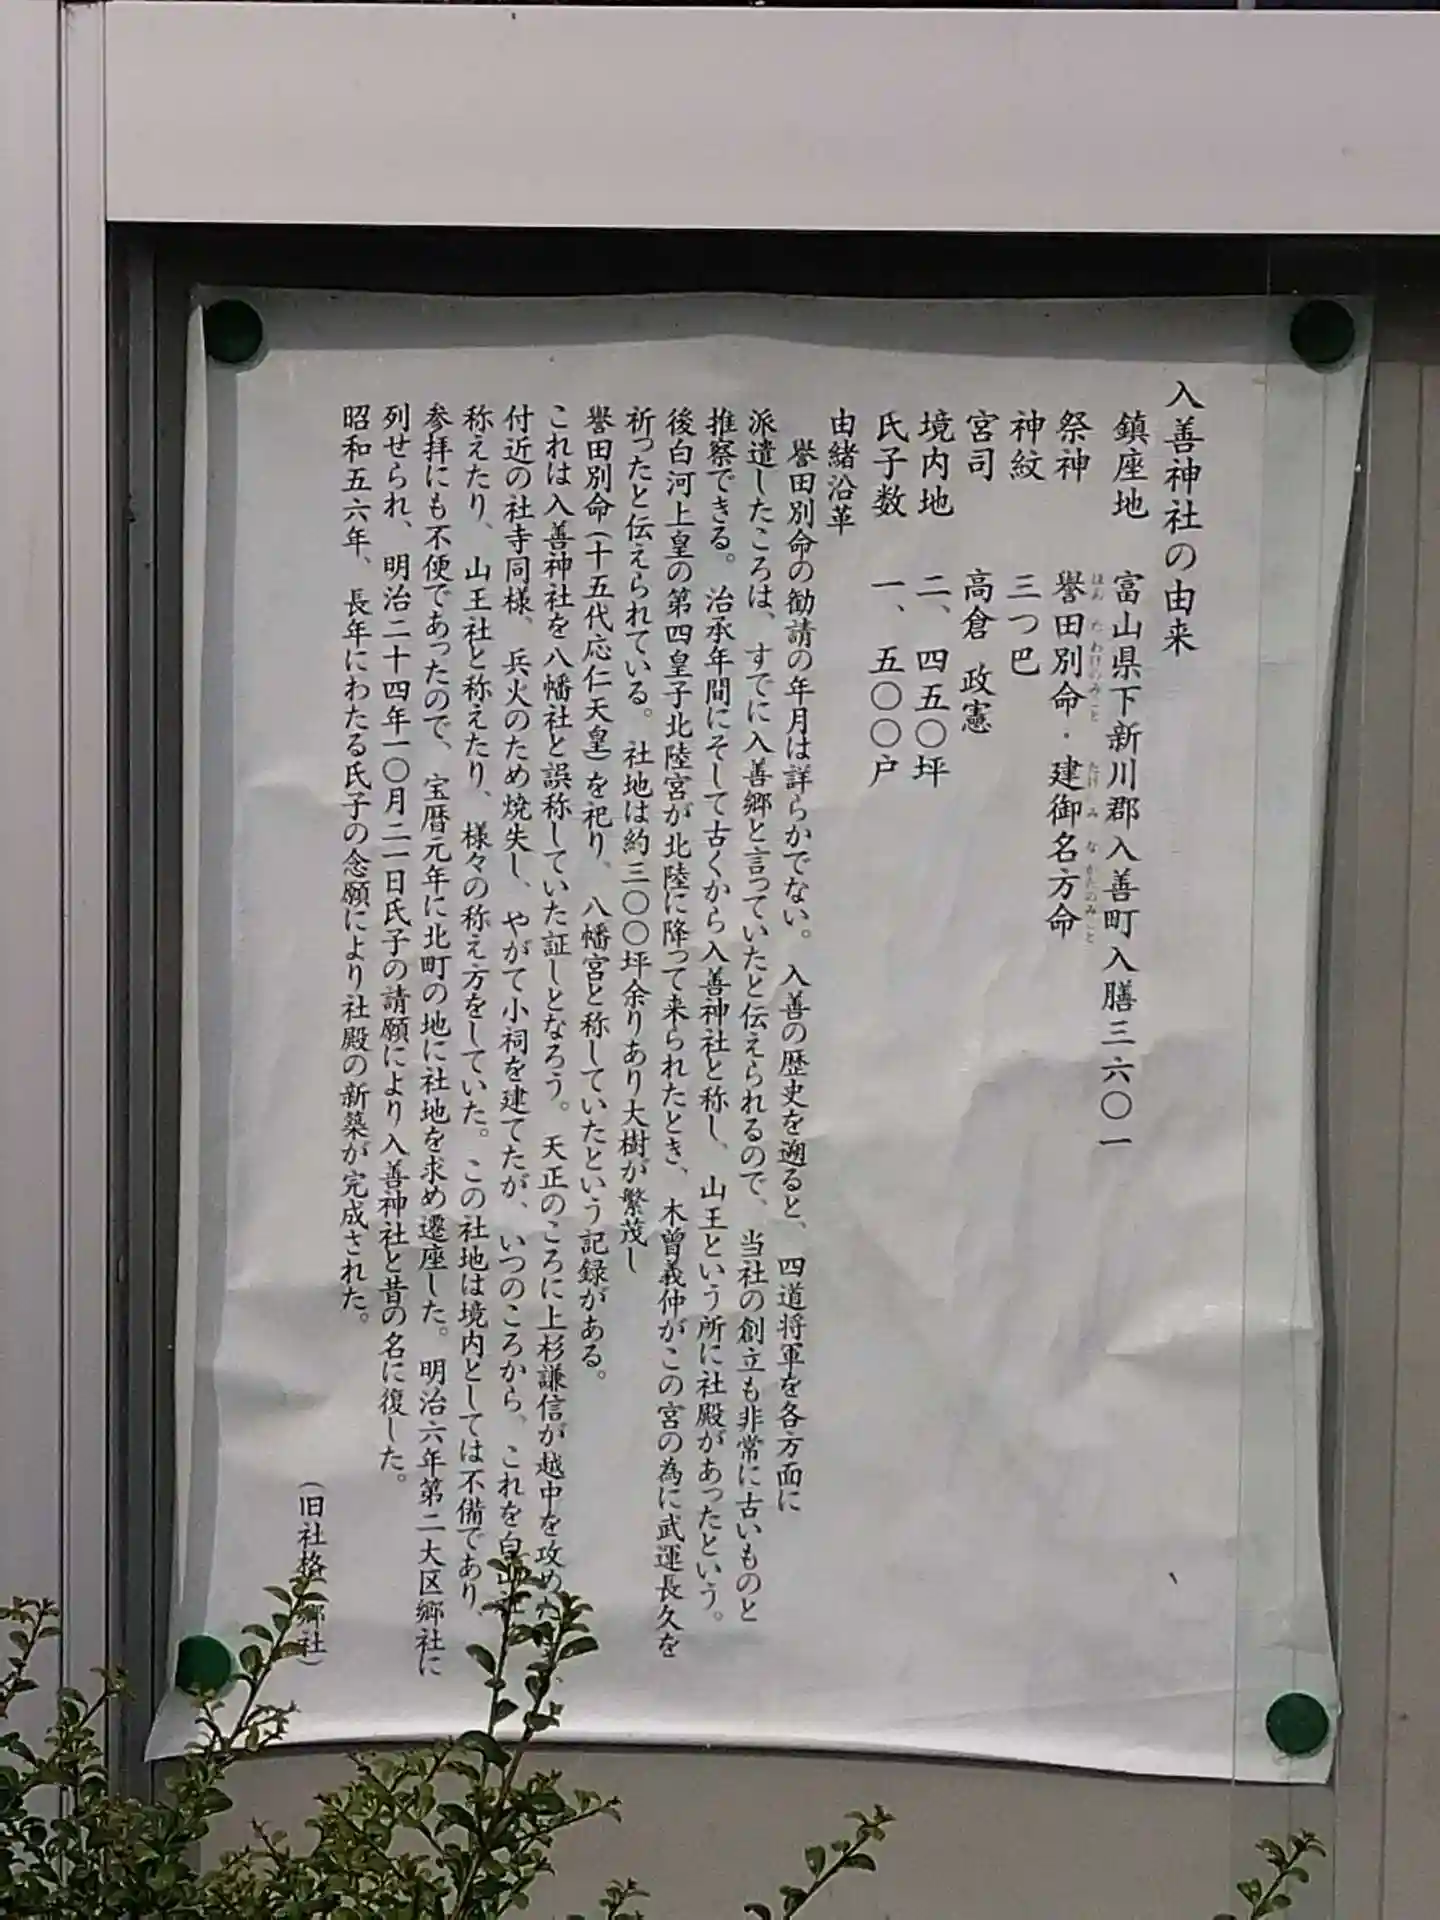 入善神社の由来
鎮座地 富山県下新川郡入善町入膳三六〇一
祭神 譽田別命・建御名方命
ほむ たわけのみこと たけ み な かたのみこと
神紋 三つ巴
宮司 高倉 政憲
境内地 二、四五〇坪
氏子数 一、五〇〇戸
由緒沿革
譽田別命の勧請の年月は詳らかでない。入善の歴史を遡ると、四道将軍を各方面に
派遣したころは、すでに入善郷と言っていたと伝えられるので、当社の創立も非常に古いものと
推察できる。治承年間にそして古くから入善神社と称し、山王という所に社殿があったという。
後白河上皇の第四皇子北陸宮が北陸に降って来られたとき、木曽義仲がこの宮の為に武運長久を
祈ったと伝えられている。社地は約三〇〇坪余りあり大樹が繁茂し
譽田別命(十五代応仁天皇)を祀り、八幡宮と称していたという記録がある。
これは入善神社を八幡社と誤称していた証しとなろう。天正のころに上杉謙信が越中を攻めた
付近の社寺同様、兵火のため焼失し、やがて小祠を建てたが、いつのころから、これを白山社
称えたり、山王社と称えたり、様々の称え方をしていた。この社地は境内としては不備であり、
参拝にも不便であったので、宝暦元年に北町の地に社地を求め遷座した。明治六年第二大区郷社に
列せられ、明治二十四年一〇月二一日氏子の請願により入善神社と昔の名に復した。
昭和五六年、長年にわたる氏子の念願により社殿の新築が完成された。
(旧社格 郷社)